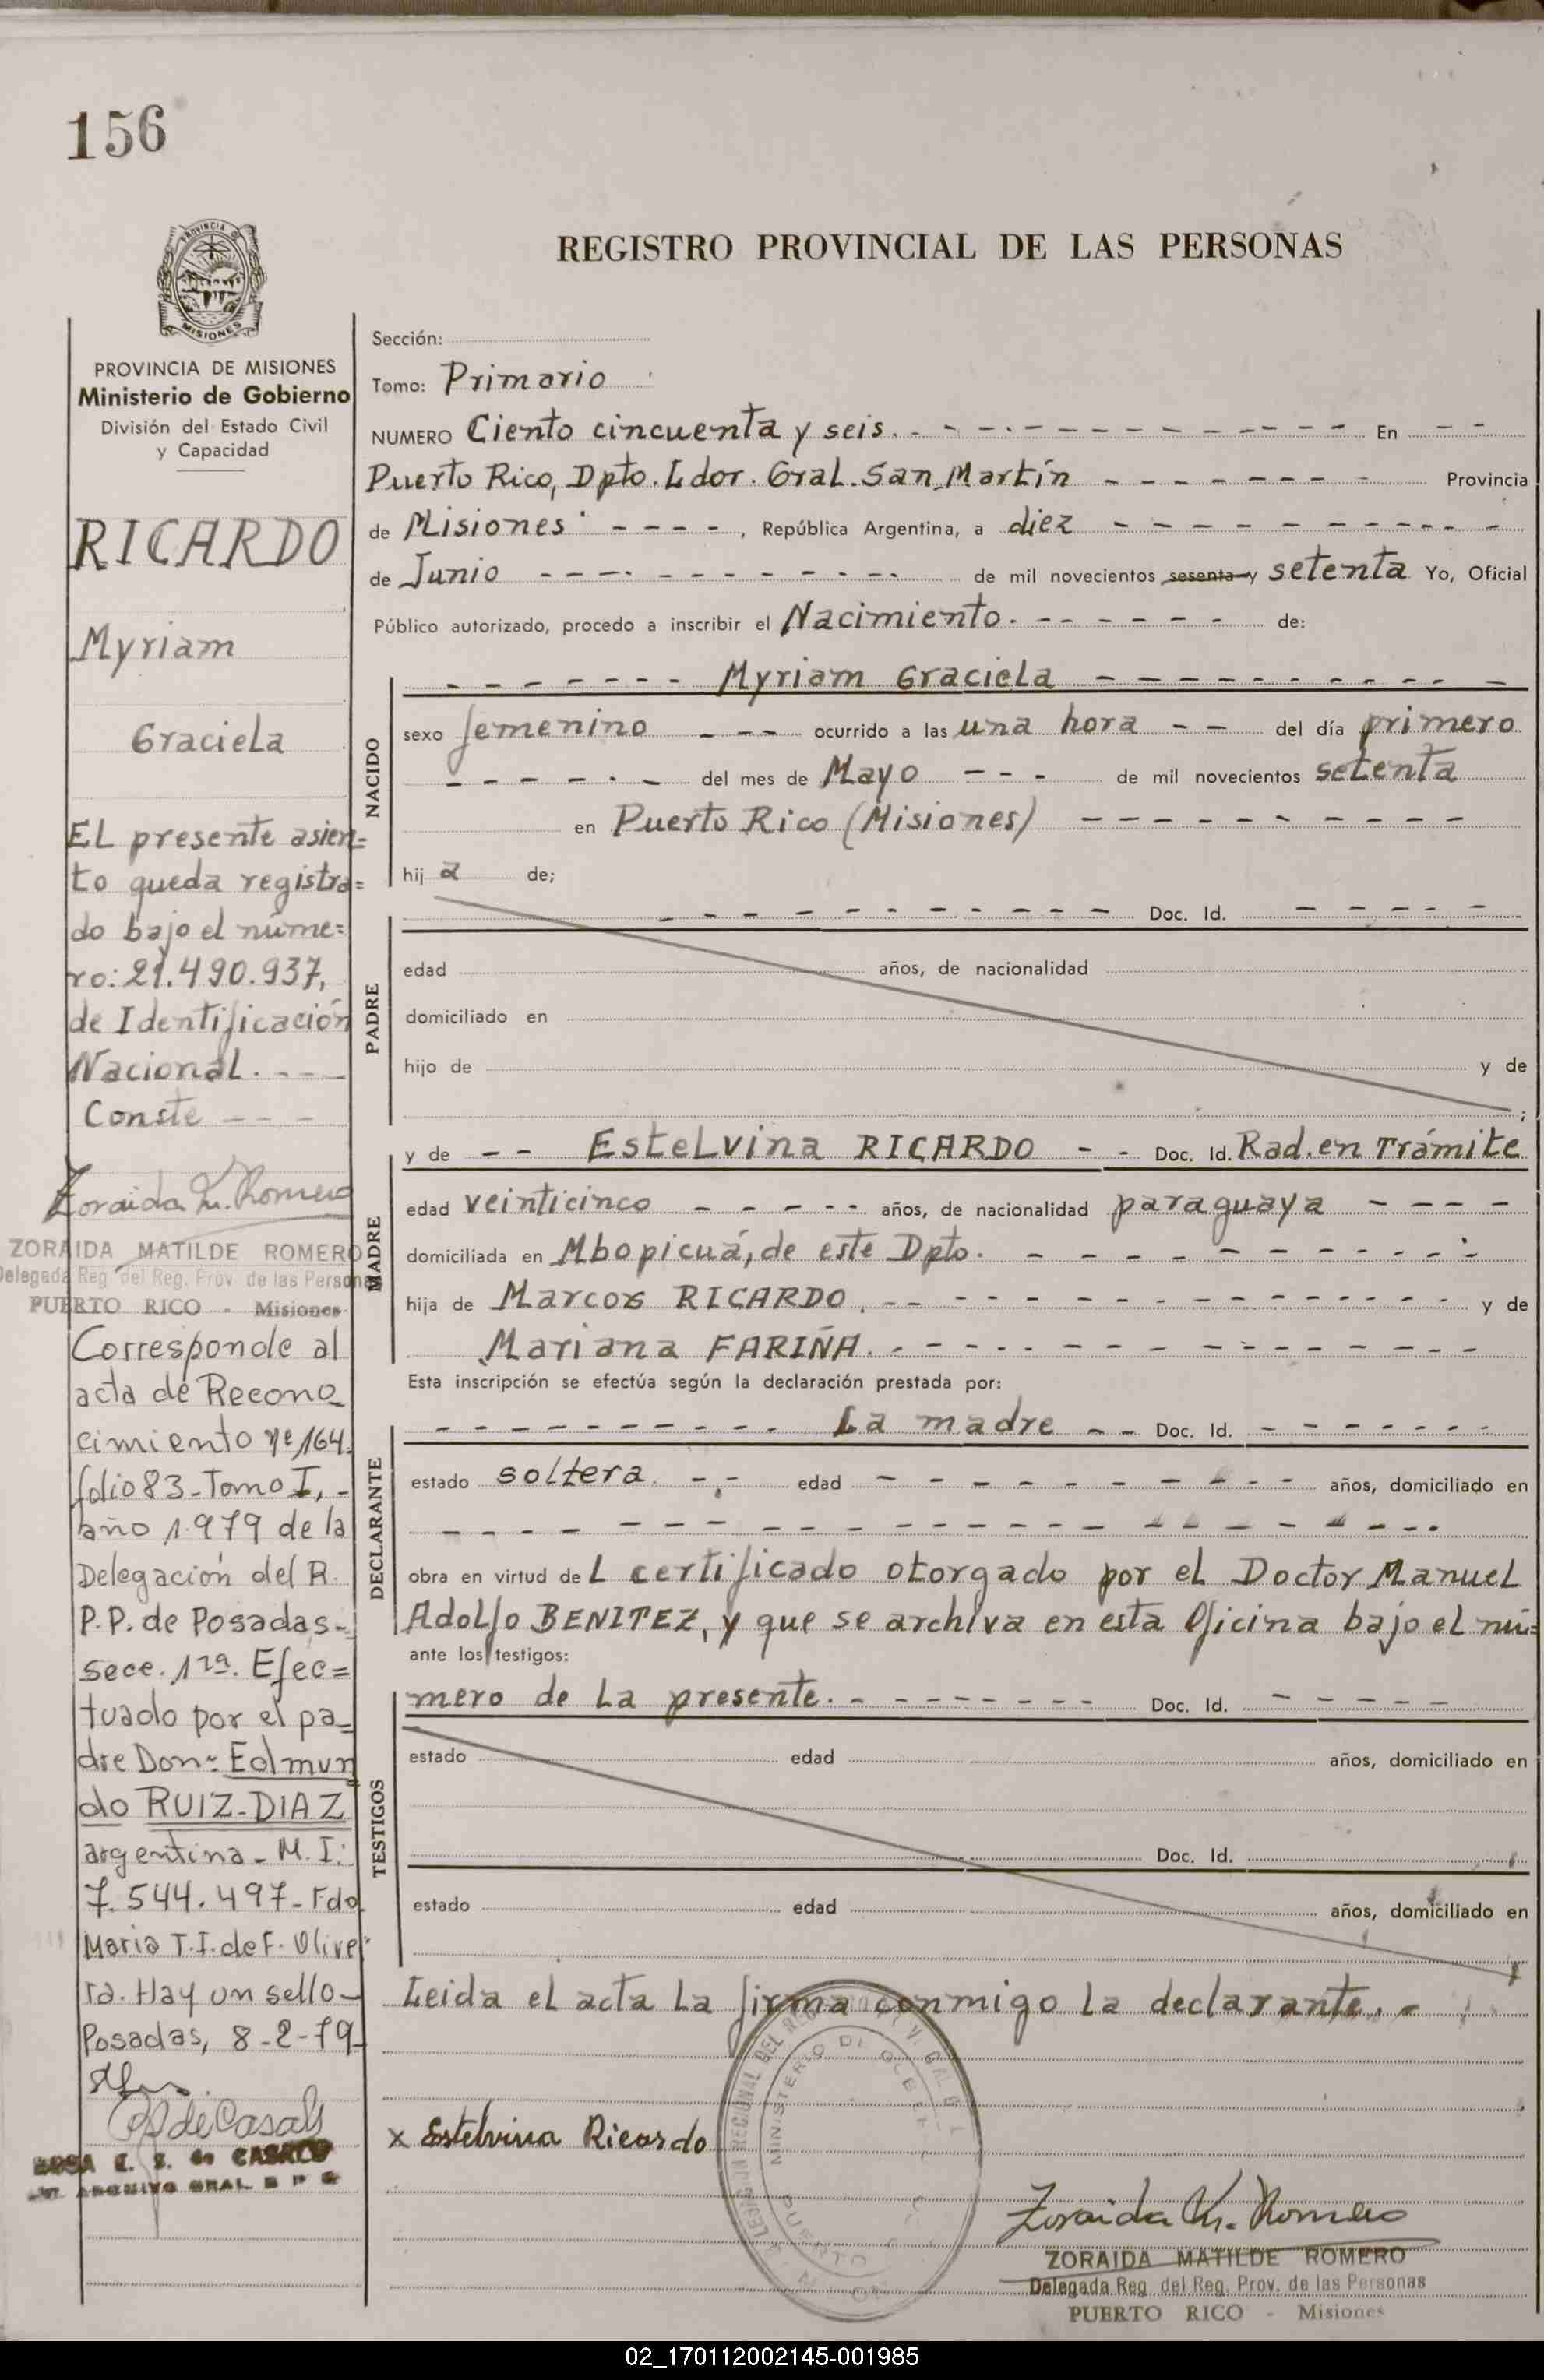 156
REGISTRO PROVINCIAL DE LAS PERSONAS
PROVINCIA DE MISIONES
Ministerio de Gobierno
División del Estado Civil
y Capacidad
RICARDO
Myriam
Graciela
EL presente asien=
to queda registra=
do bajo el núme=
ro: 21.490.937,
de Identificación
Nacional. - - -
Conste - - -
Zoraida M. Romero
ZORAIDA MATILDE ROMERO
Delegada Reg. del Reg. Prov. de las Personas
PUERTO RICO - Misiones
Corresponde al
acta de Recono_
cimiento nº 164.
folio 83 - Tomo I, -
año 1.979 de la
Delegación del R.
P.P. de Posadas -
secc. 1ra. Efec=
tuado por el pa_
dre Don: Edmun
do RUIZ-DIAZ
argentina - M. I:
7.544.497 - Fdo
Maria T.I. de F. Olive
ra. Hay un sello -
Posadas, 8-2-79
Sección:
Tomo: Primario
NUMERO Ciento cincuenta y seis. - - - - En - -
Puerto Rico, Dpto. Ldor. Gral. San Martín - - - - Provincia
de Misiones - - - -, República Argentina, a diez - - - -
de Junio - - - - de mil novecientos sesenta y setenta Yo, Oficial
Público autorizado, procedo a inscribir el Nacimiento. - - - - de:
- - - - Myriam Graciela - - - -
NACIDO
sexo femenino - - - ocurrido a las una hora - - del día primero
- - - - del mes de Mayo - - - de mil novecientos setenta
en Puerto Rico (Misiones) - - - -
hij a de;
PADRE
- - - - Doc. Id. - - - -
edad años, de nacionalidad
domiciliado en
hijo de y de
;
MADRE
y de - - Estelvina RICARDO - - Doc. Id. Rad. en Trámite
edad veinticinco - - - - años, de nacionalidad paraguaya - - - -
domiciliada en Mbopicuá, de este Dpto. - - - -
hija de Marcos RICARDO. - - - - y de
Mariana FARIÑA. - - - -
Esta inscripción se efectúa según la declaración prestada por:
DECLARANTE
- - - - La madre - - Doc. Id. - - - -
estado soltera. - - edad - - - - años, domiciliado en
- - - -
obra en virtud de L certificado otorgado por el Doctor Manuel
Adolfo BENITEZ, y que se archiva en esta Oficina bajo el nú=
ante los testigos:
TESTIGOS
mero de La presente. - - - - Doc. Id. - - - -
estado edad años, domiciliado en
Doc. Id.
estado edad años, domiciliado en
Leida el acta La firma conmigo la declarante. -
x Estelvina Ricardo
Zoraida M. Romero
ZORAIDA MATILDE ROMERO
Delegada Reg. del Reg. Prov. de las Personas
PUERTO RICO - Misiones
02_170112002145-001985